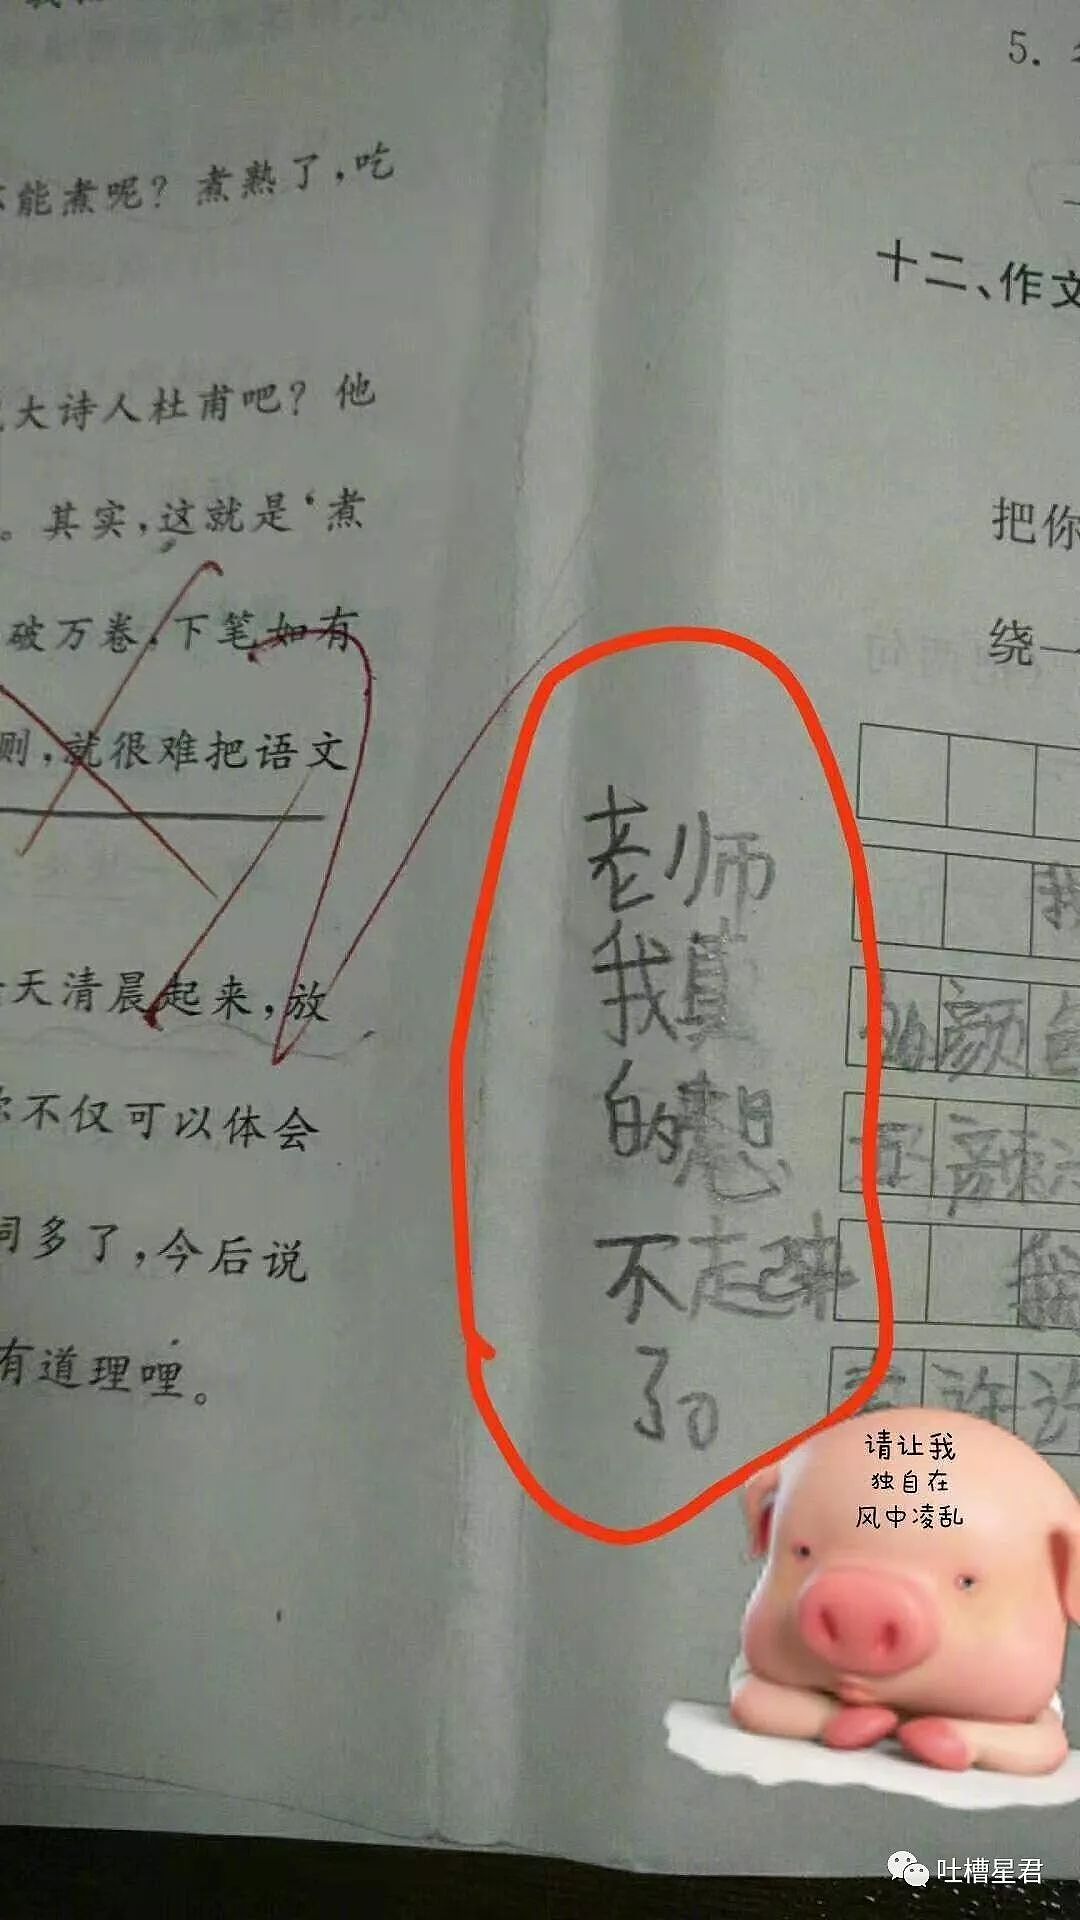 5.
能煮呢？煮熟了，吃
大诗人杜甫吧？他
。其实，这就是‘煮
破万卷，下笔如有
则，就很难把语文
天清晨起来，放
你不仅可以体会
词多了，今后说
有道理哩。
老师
我真
的想
不起来
了。
十二、作文
把你
绕一
我
的颜色
我
许许
请让我
独自在
风中凌乱
吐槽星君